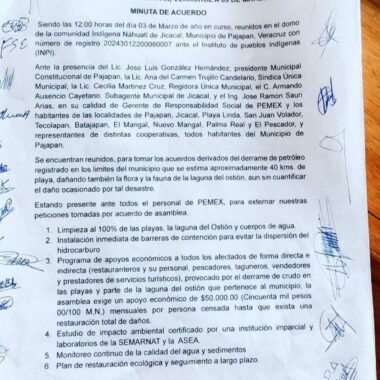 MINUTA DE ACUERDO
Siendo las 12:00 horas del día 03 de Marzo de año en curso, reunidos en el domo
de la comunidad Indígena Náhuatl de Jicacal, Municipio de Pajapan, Veracruz con
número de registro 20243012200080007 ante el Instituto de pueblos indígenas
(INPI).
Ante la presencia del Lic. Jose Luis González Hernández, presidente Municipal
Constitucional de Pajapan, la Lic. Ana del Carmen Trujillo Candelario, Sindica Única
Municipal, la Lic. Cecilia Martinez Cruz, Regidora Única Municipal, el C. Armando
Ausencio Cayetano, Subagente Municipal de Jicacal, y el Ing. Jose Ramon Sauri
Arias, en su calidad de Gerente de Responsabilidad Social de PEMEX y los
habitantes de las localidades de Pajapan, Jicacal, Playa Linda, San Juan Volador,
Tecolapan, Batajapan, El Mangal, Nuevo Mangal, Palma Real y El Pescador, y
representantes de distintas cooperativas, todos habitantes del Municipio de
Pajapan.
Se encuentran reunidos, para tomar los acuerdos derivados del derrame de petróleo
registrado en los limites del municipio que se estima aproximadamente 40 kms. de
playa, dañando también la flora y la fauna de la laguna del ostión, aun sin cuantificar
el daño ocasionado por tal desastre.
Estando presente ante todos el personal de PEMEX, para externar nuestras
peticiones tomadas por acuerdo de asamblea.
1. Limpieza al 100% de las playas, la laguna del Ostión y cuerpos de agua.
2. Instalación inmediata de barreras de contención para evitar la dispersión del
hidrocarburo
3. Programa de apoyos económicos a todos los afectados de forma directa e
indirecta (restauranteros y su personal, pescadores, laguneros, vendedores
y prestadores de servicios turísticos), provocado por el derrame de crudo en
las playas y parte de la laguna del ostión que pertenece al municipio, la
asamblea exige un apoyo económico de $50,000.00 (Cincuenta mil pesos
00/100 M.N.) mensuales por persona censada hasta que exista una
restauración total de daños.
4. Estudio de impacto ambiental certificado por una institución imparcial y
laboratorios de la SEMARNAT y la ASEA.
5. Monitoreo continuo de la calidad del agua y sedimentos
6. Plan de restauración ecológica y seguimiento a largo plazo.